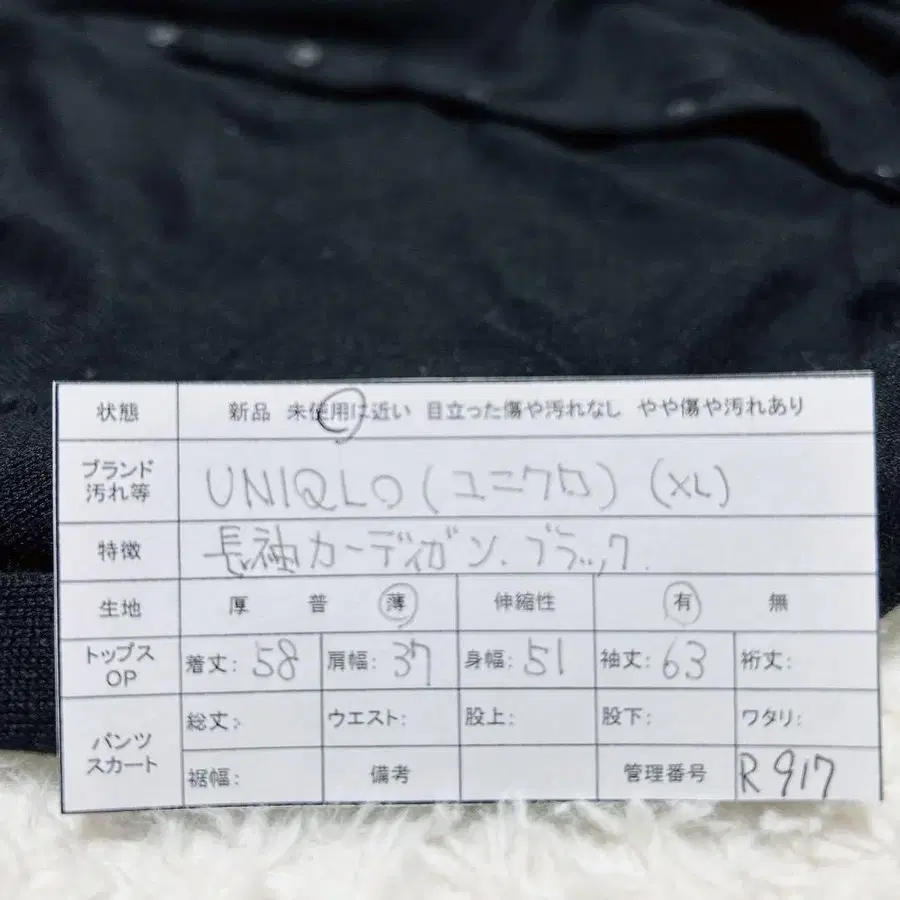 状態 新品 未使用に近い 目立った傷や汚れなし やや傷や汚れあり
ブランド
汚れ等
UNIQLO(ユニクロ)(XL)
特徴 長袖カーディガン、ブラック.
生地 厚 普 薄 伸縮性 有 無
トップス
OP
着丈:58 肩幅:37 身幅:51 袖丈:63 裄丈:
パンツ
スカート
総丈: ウエスト: 股上: 股下: ワタリ:
裾幅: 備考 管理番号 R917